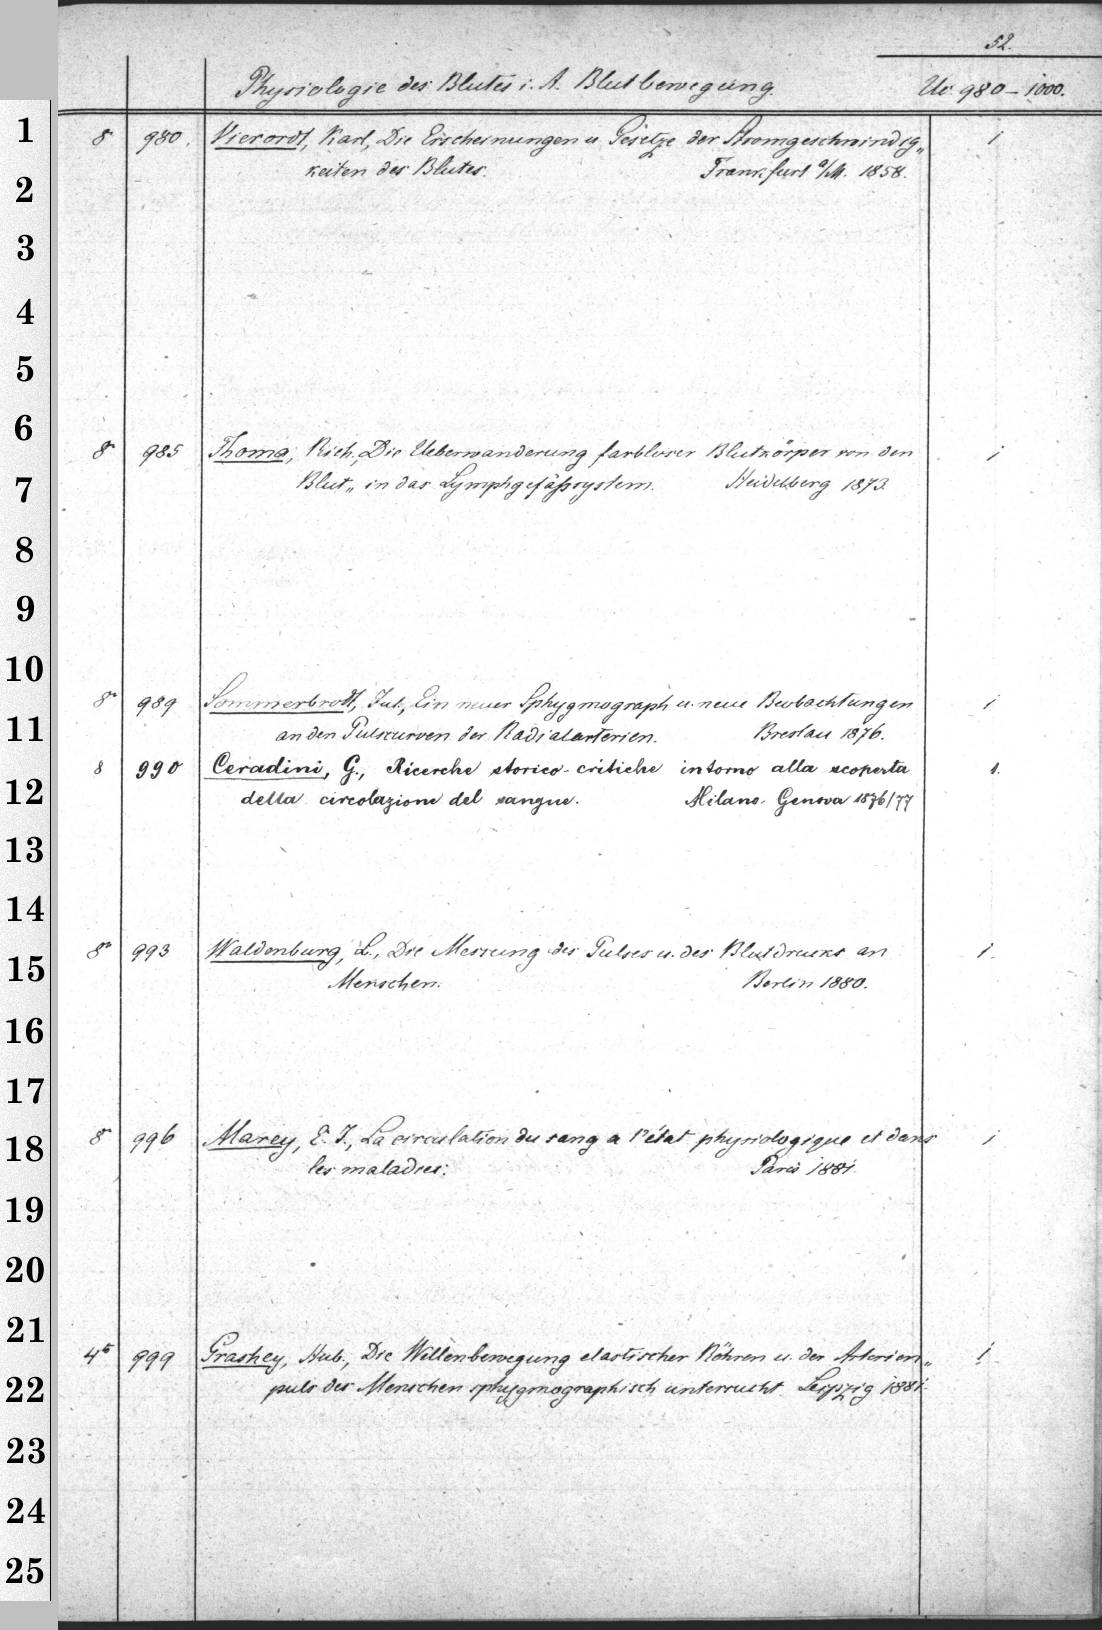 52.
Physiologie des Blutes i. A. Blutbewegung. Uc 980 – 1000.
1
8 980. Vierordt, Karl, Die Erscheinungen u. Gesetze der Stromgeschwindig„ 1
keiten des Blutes. Frankfurt a/M. 1858.
2
3
4
5
6
8 985 Thoma, Rich., Die Ueberwanderung farbloser Blutkörper von den 1
7
Blut„ in das Lymphgefässsystem. Heidelberg 1873.
8
9
10
8° 989 Sommerbrodt, Jul., Ein neuer Sphygmograph u. neue Beobachtungen 1
11
an den Pulscurven der Radialarterien. Breslau 1876.
8 990 Ceradini, G., Ricerche storico-critiche intorno alla scoperta 1.
12
della circolazione del sangue. Milano-Genova 1876/77
13
14
8° 993 Waldenburg, L., Die Messung des Pulses u. des Blutdrucks an 1.
15
Menschen. Berlin 1880.
16
17
8 996 Marey, E. J., La circulation du sang a l'état physiologique et dans 1
18
les maladies. Paris 1881.
19
20
21
4° 999 Grashey, Hub., Die Wellenbewegung elastischer Röhren u. der Arterien„ 1.
22
puls des Menschen sphygmographisch untersucht Leipzig 1881.
23
24
25